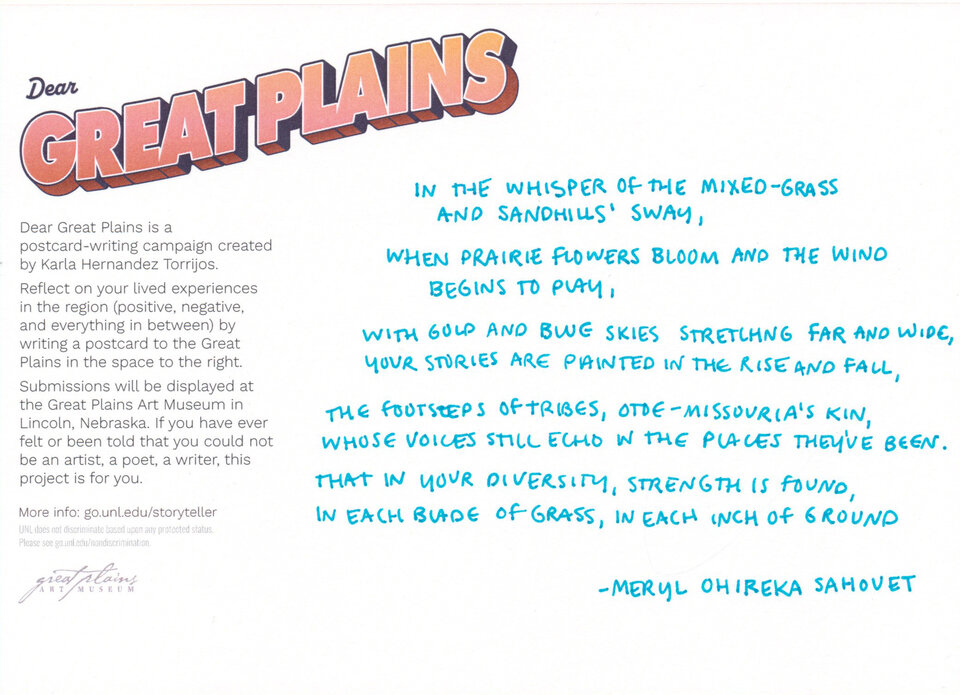 Dear
GREAT PLAINS
Dear Great Plains is a
postcard-writing campaign created
by Karla Hernandez Torrijos.
Reflect on your lived experiences
in the region (positive, negative,
and everything in between) by
writing a postcard to the Great
Plains in the space to the right.
Submissions will be displayed at
the Great Plains Art Museum in
Lincoln, Nebraska. If you have ever
felt or been told that you could not
be an artist, a poet, a writer, this
project is for you.
More info: go.unl.edu/storyteller
UNL does not discriminate based upon any protected status.
Please see go.unl.edu/nondiscrimination.
great plains
ART MUSEUM
IN THE WHISPER OF THE MIXED-GRASS
AND SANDHILLS' SWAY,
WHEN PRAIRIE FLOWERS BLOOM AND THE WIND
BEGINS TO PLAY,
WITH GOLD AND BLUE SKIES STRETCHNG FAR AND WIDE,
YOUR STORIES ARE PAINTED IN THE RISE AND FALL,
THE FOOTSTEPS OF TRIBES, OTOE-MISSOURIA'S KIN,
WHOSE VOICES STILL ECHO IN THE PLACES THEY'VE BEEN.
THAT IN YOUR DIVERSITY, STRENGTH IS FOUND,
IN EACH BLADE OF GRASS, IN EACH INCH OF GROUND
-MERYL OHIREKA SAHOUET